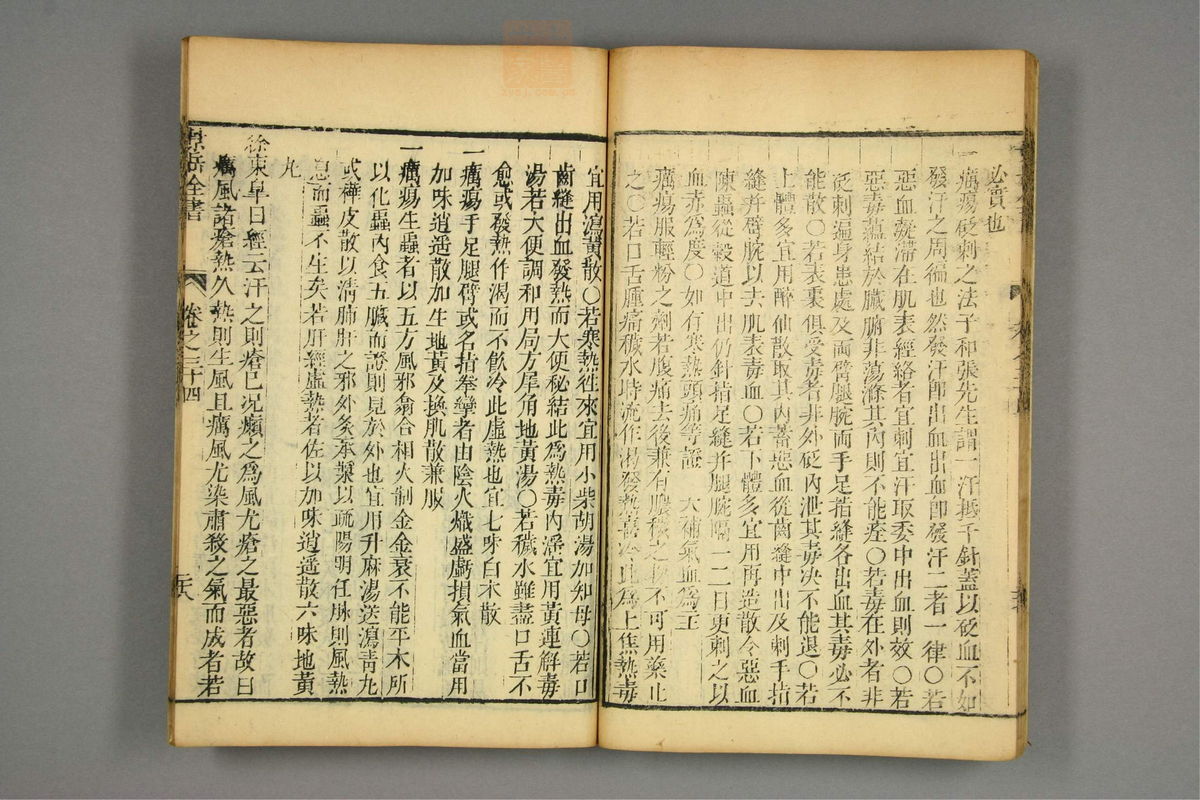 必實也
一癘瘍砭刺之法子和張先生謂一汗抵千針蓋以砭血不如
發汗之周徧也然發汗即出血出血即發汗二者一律○若
惡血凝滯在肌表經絡者宜刺宜汗取委中出血則效○若
惡毒蘊結於臟腑非蕩滌其内則不能痊○若毒在外者非
砭刺遍身患處及兩臂腿腕兩手足指縫各出血其毒必不
能散○若表裏俱受毒者非外砭内泄其毒决不能退○若
上體多宜用醉仙散取其内蓄惡血從齒縫中出及刺手指
縫并臂腕以去肌表毒血○若下體多宜用再造散令惡血
陳蟲從穀道中出仍針指足縫并腿腕隔一二日更刺之以
血赤為度○如有寒熱頭痛等證 大補氣血為主
癘瘍服輕粉之劑若腹痛去後兼有膿穢之物不可用藥止
之○若口舌腫痛穢水時流作渴發熱喜冷此為上焦熱毒
宜用瀉黄散○若寒熱徃來宜用小柴胡湯加知母○若口
齒縫出血發熱而大便秘結此為熱毒内淫宜用黄連解毒
湯若大便調和用局方犀角地黄湯○若穢水雖盡口舌不
愈或發熱作渴而不飲冷此虛熱也宜七味白术散
一癘瘍手足腿臂或各指拳攣者由陰火熾盛虧損氣血當用
加味逍遥散加生地黄及換肌散兼服
一癘瘍生蟲者以五方風邪翕合相火制金金衰不能平木所
以化蟲内食五臟而證則見於外也宜用升麻湯送瀉青丸
或樺皮散以清肺肝之邪外灸承漿以疏陽明任脉則風熱
息而蟲不生矣若肝經虛熱者佐以加味逍遥散六味地黄
丸
徐東皐曰經云汗之則瘡已况癩之為風尤瘡之最惡者故曰
癘風諸瘡熱久熱則生風且癘風尤染肅殺之氣而成者若
景岳全書
卷之三十四